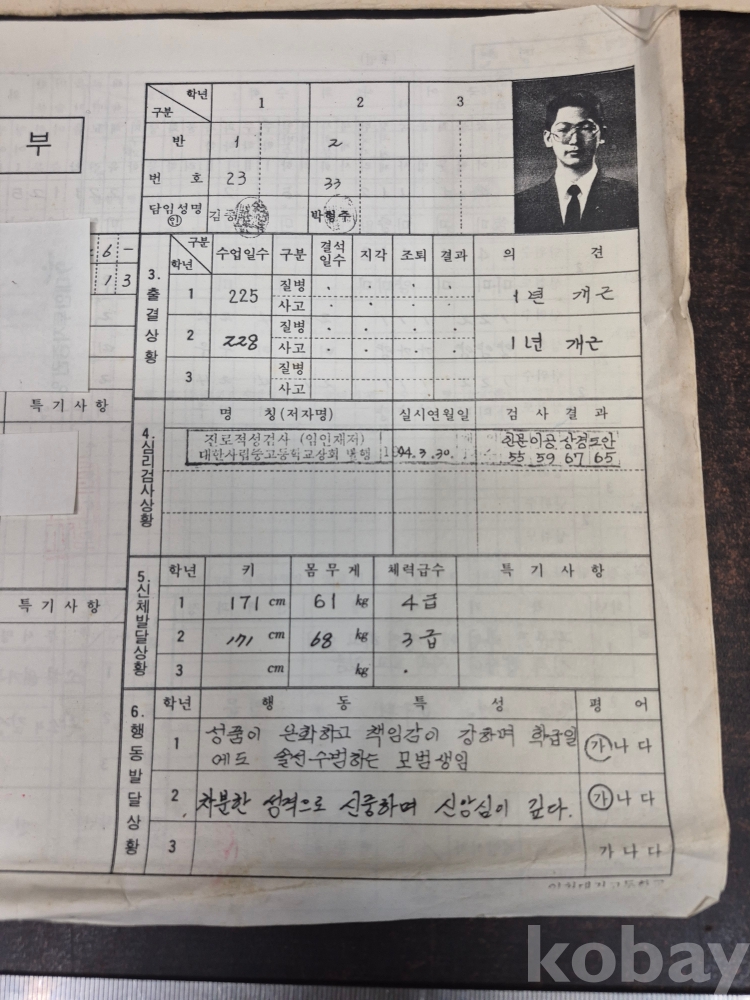 부
학년 1 2 3
구분
반 1 2
번 호 23 33
담임성명 ㊞ 박형주
- 6 -
1 3
3. 출결상황
구분 학년 수업일수 구분 결석일수 지각 조퇴 결과 의 견
1 225 질병 · · · · 1년 개근
사고 · · · ·
2 228 질병 · · · · 11년 개근
사고 · · · ·
3 질병
사고
특기사항
4. 심리검사상황
명 칭(저자명) 실시연월일 검 사 결 과
진로적성검사 (임인재저)
대한사립중고등학교장회 발행 94. 3. 30. 55 59 67 65
5. 신체발달상황
학년 키 몸 무 게 체력급수 특 기 사 항
1 171 cm 61 kg 4급
2 171 cm 68 kg 3급
3 cm kg ·
특기사항
6. 행동발달상황
학년 행 동 특 성 평 어
1 성품이 온화하고 책임감이 강하며 학급일
에도 솔선수범하는 모범생임 가 나 다
2 차분한 성격으로 신중하며 신앙심이 깊다. 가 나 다
3 가 나 다
kobay